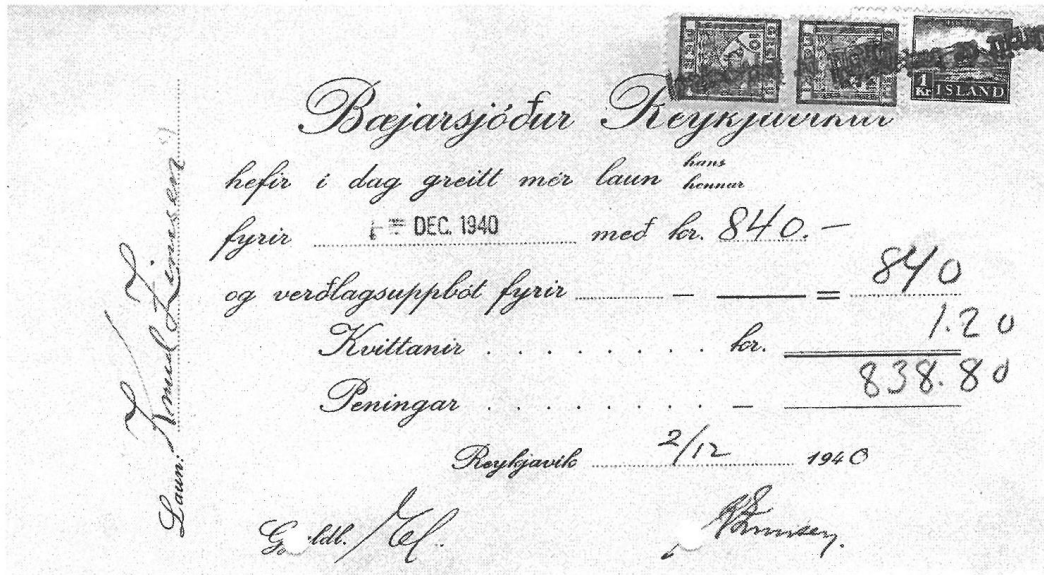 1 Kr ÍSLAND
Bæjarsjóður Reykjavíkur
hefir í dag greitt mér laun hans hennar
fyrir DEC. 1940 með kr. 840.-
og verðlagsuppbót fyrir — = 840
Kvittanir kr. 1.20
Peningar — 838.80
Reykjavík 2/12 1940
Laun: Knud Zimsen